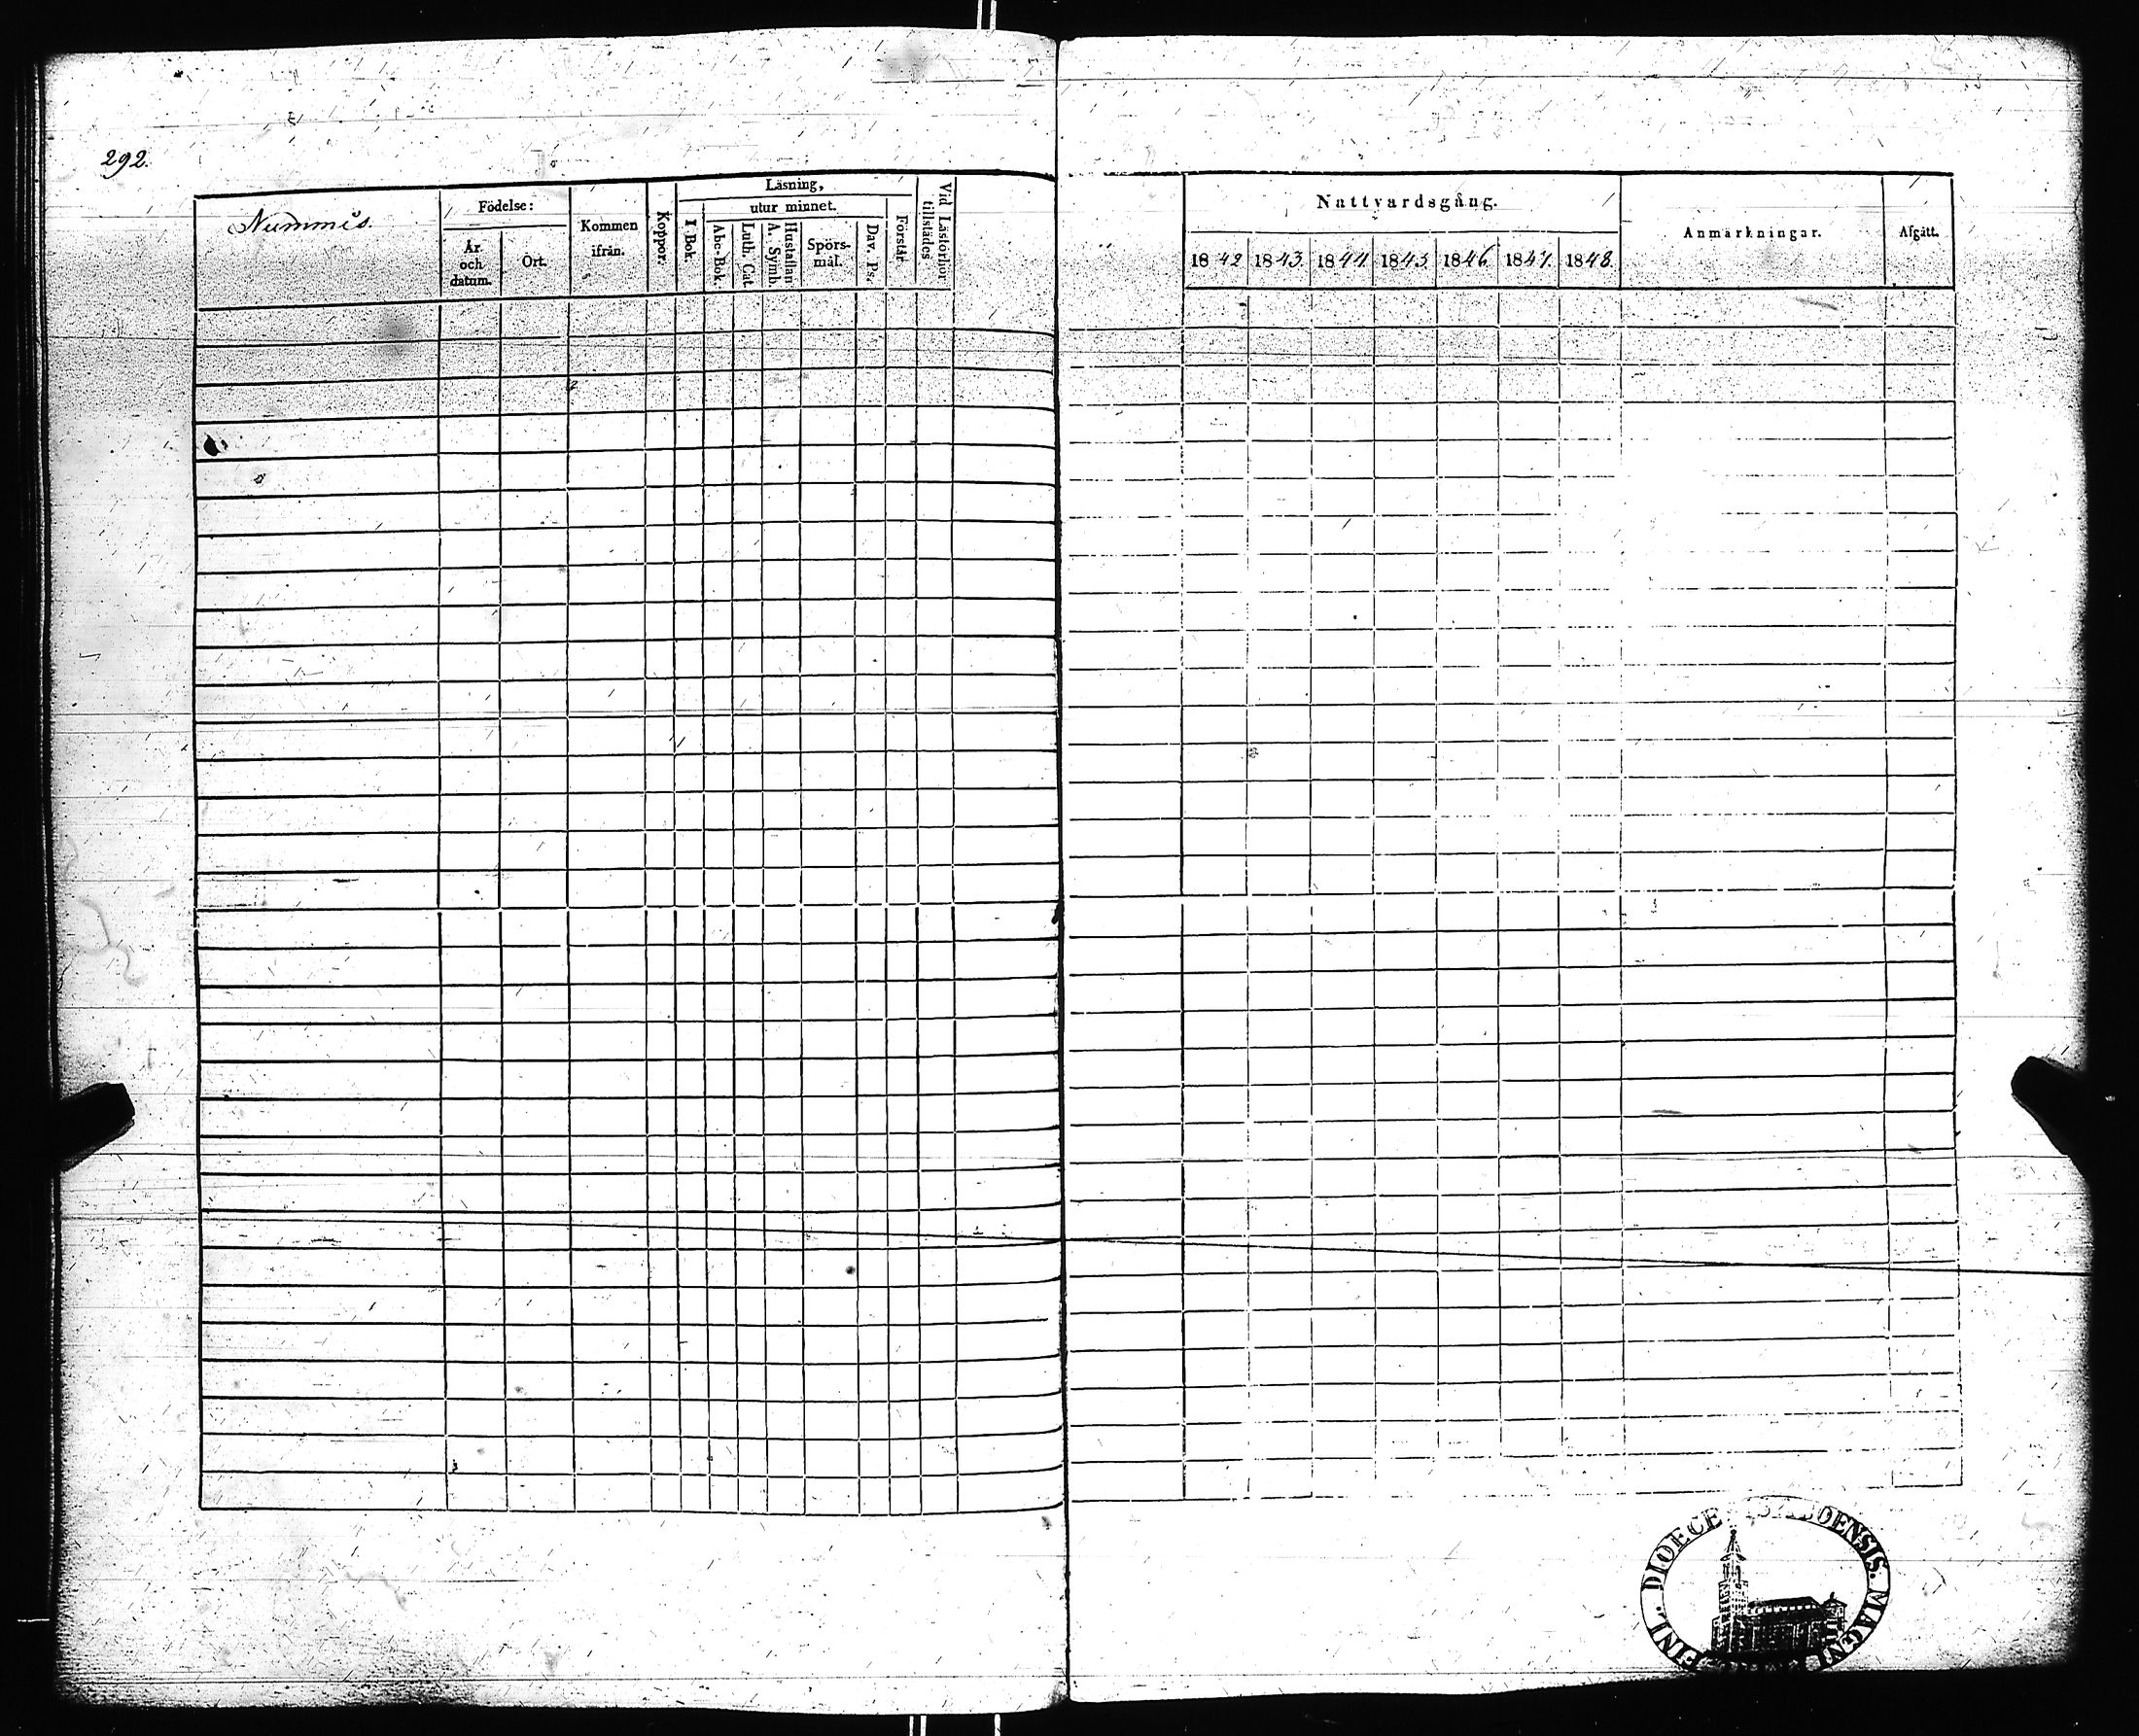 292.
Nummis.
Födelse:
År och datum.
Ort.
Kommen ifrån.
Koppor.
Läsning,
utur minnet.
I Bok.
Abc-Bok.
Luth. Cat.
Hustaflan A. Symb.
Spörsmål.
Dav. Ps.
Förstår.
Vid Läsförhör tillstädes
Nattvardsgång.
1842 1843. 1844. 1845 1846. 1847. 1848.
Anmärkningar.
Afgått.
DIOECE ABOENSIS. MAGNI